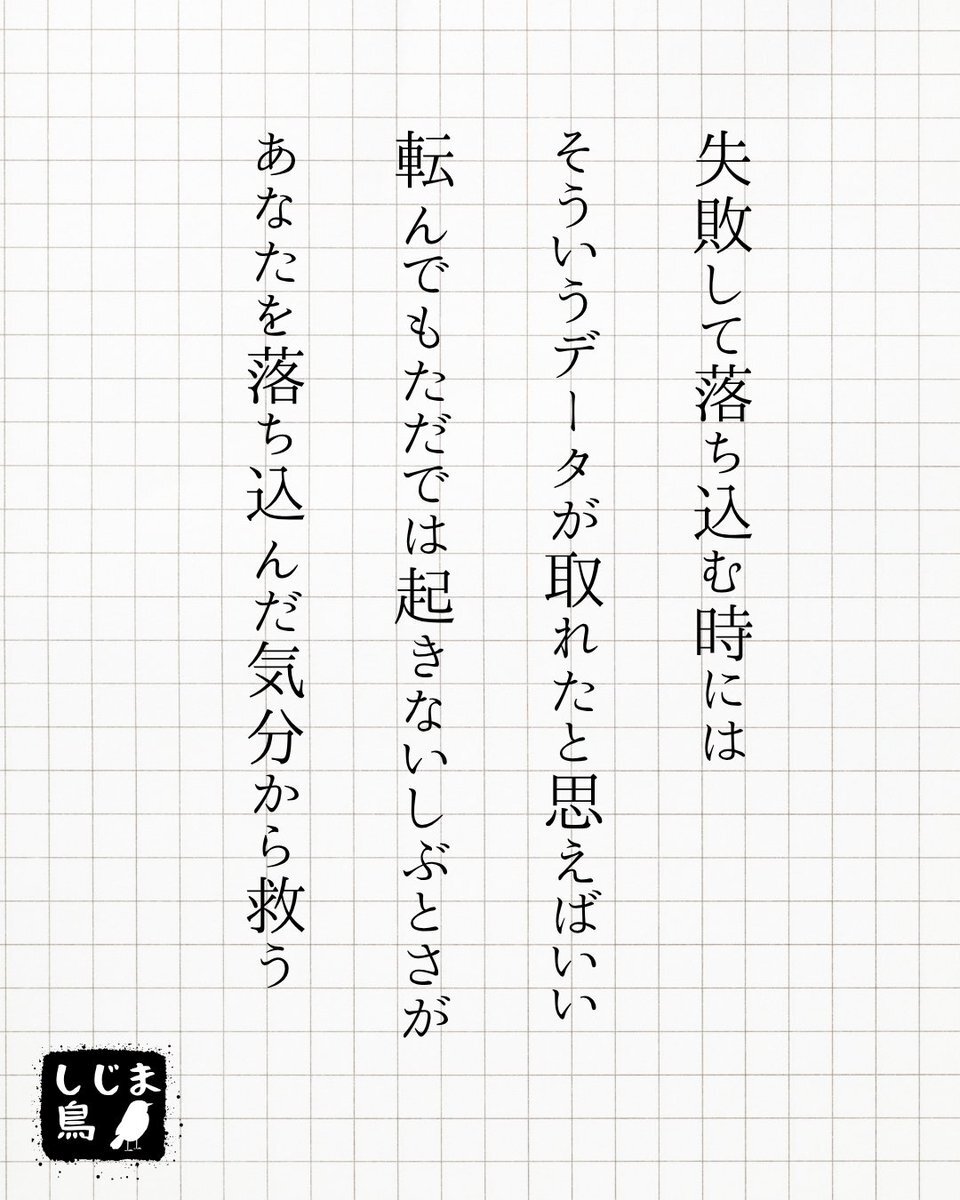 失敗して落ち込む時には
そういうデータが取れたと思えばいい
転んでもただでは起きないしぶとさが
あなたを落ち込んだ気分から救う
しじま
鳥